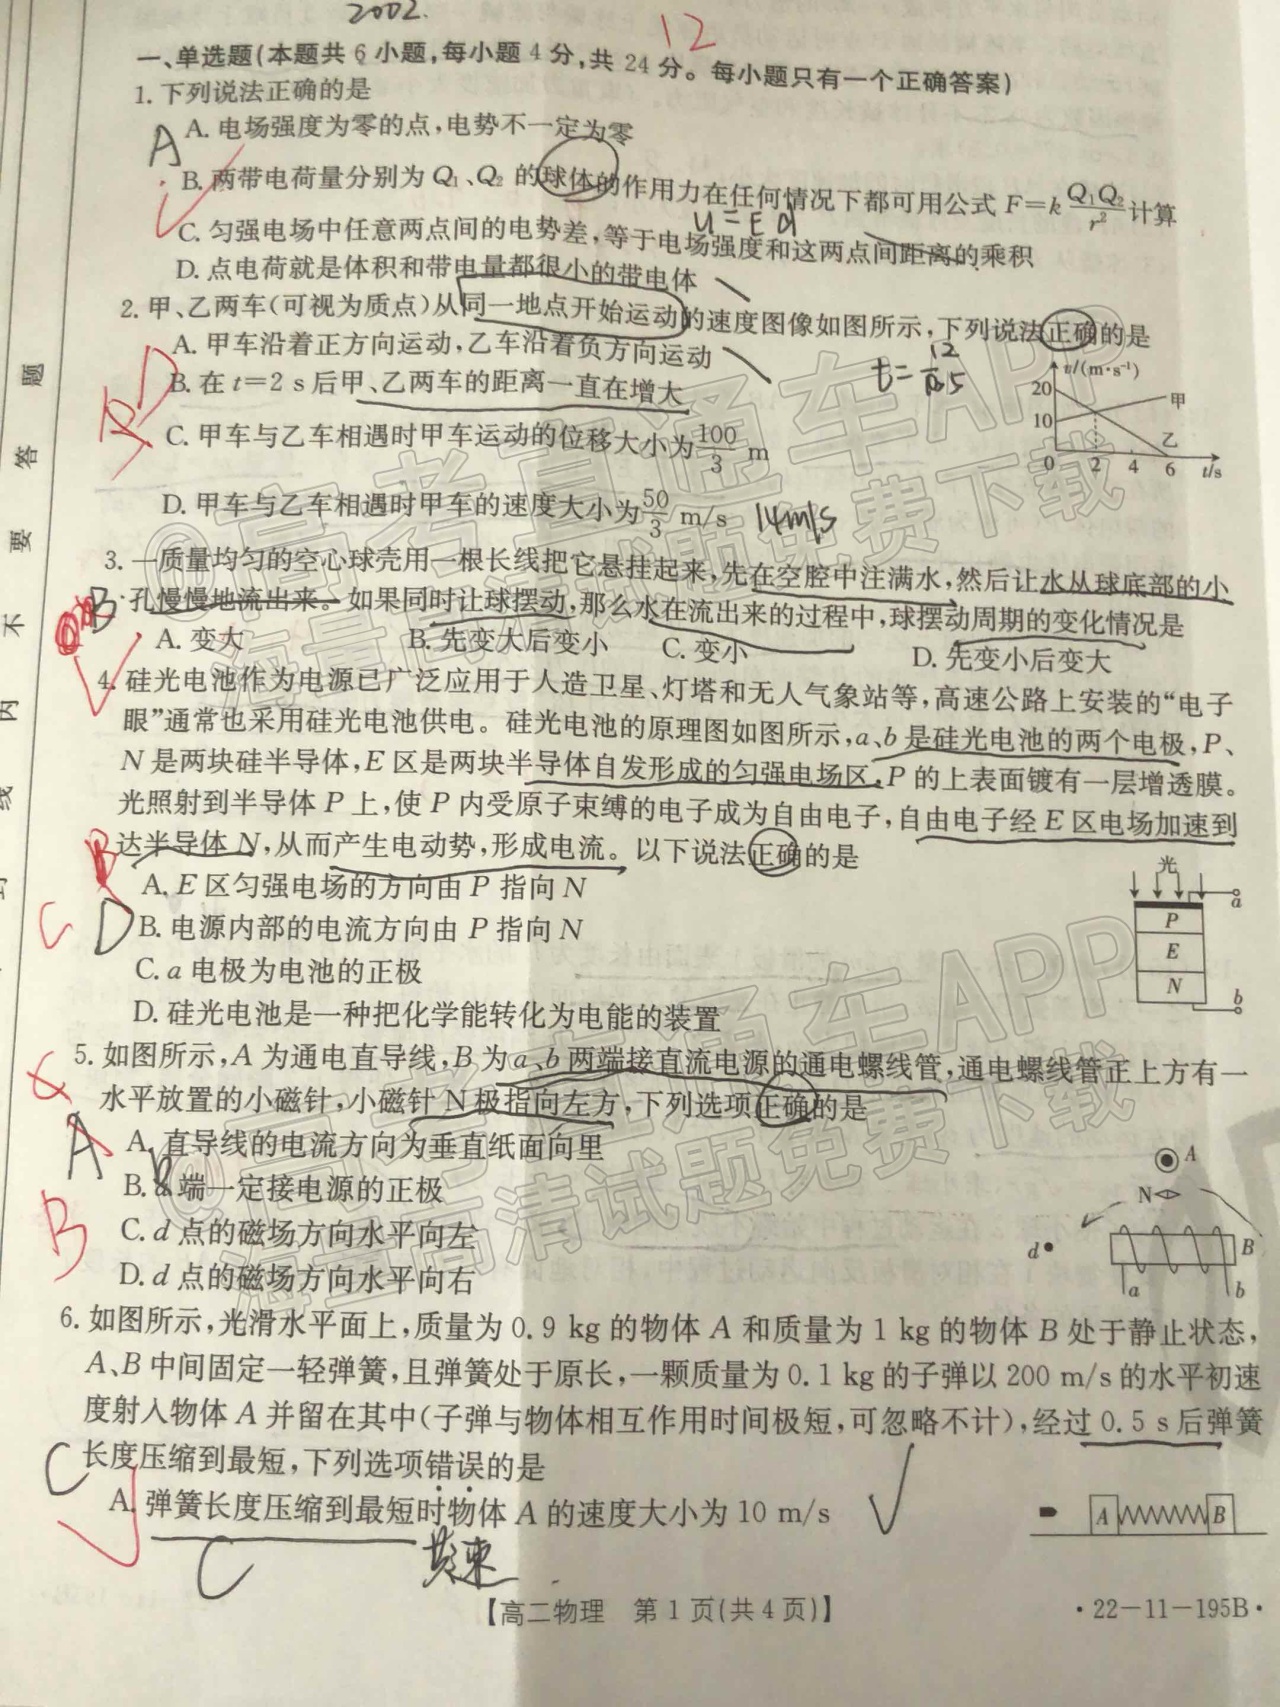 2002.
12
一、单选题(本题共 6 小题,每小题 4 分,共 24 分。每小题只有一个正确答案)
1. 下列说法正确的是
A. 电场强度为零的点,电势不一定为零
A
B. 两带电荷量分别为 Q₁、Q₂ 的球体的作用力在任何情况下都可用公式 F=k Q₁Q₂/r² 计算
U=Ed
C. 匀强电场中任意两点间的电势差,等于电场强度和这两点间距离的乘积
D. 点电荷就是体积和带电量都很小的带电体
2. 甲、乙两车(可视为质点)从同一地点开始运动的速度图像如图所示,下列说法正确的是
A. 甲车沿着正方向运动,乙车沿着负方向运动
B. 在 t=2 s 后甲、乙两车的距离一直在增大
C. 甲车与乙车相遇时甲车运动的位移大小为 100/3 m
D. 甲车与乙车相遇时甲车的速度大小为 50/3 m/s
14m/s
v/(m·s⁻¹)
20
10
甲
乙
0 2 4 6 t/s
3. 一质量均匀的空心球壳用一根长线把它悬挂起来,先在空腔中注满水,然后让水从球底部的小
孔慢慢地流出来。如果同时让球摆动,那么水在流出来的过程中,球摆动周期的变化情况是
B
A. 变大 B. 先变大后变小 C. 变小 D. 先变小后变大
4. 硅光电池作为电源已广泛应用于人造卫星、灯塔和无人气象站等,高速公路上安装的“电子
眼”通常也采用硅光电池供电。硅光电池的原理图如图所示,a、b 是硅光电池的两个电极,P、
N 是两块硅半导体,E 区是两块半导体自发形成的匀强电场区,P 的上表面镀有一层增透膜。
光照射到半导体 P 上,使 P 内受原子束缚的电子成为自由电子,自由电子经 E 区电场加速到
达半导体 N,从而产生电动势,形成电流。以下说法正确的是
A. E 区匀强电场的方向由 P 指向 N
B. 电源内部的电流方向由 P 指向 N
C. a 电极为电池的正极
D. 硅光电池是一种把化学能转化为电能的装置
B
C
D
光
a
P
E
N
b
5. 如图所示,A 为通电直导线,B 为 a、b 两端接直流电源的通电螺线管,通电螺线管正上方有一
水平放置的小磁针,小磁针 N 极指向左方,下列选项正确的是
A. 直导线的电流方向为垂直纸面向里
B. 端一定接电源的正极
C. d 点的磁场方向水平向左
D. d 点的磁场方向水平向右
A
B
A
N
d
B
a
b
6. 如图所示,光滑水平面上,质量为 0.9 kg 的物体 A 和质量为 1 kg 的物体 B 处于静止状态,
A、B 中间固定一轻弹簧,且弹簧处于原长,一颗质量为 0.1 kg 的子弹以 200 m/s 的水平初速
度射入物体 A 并留在其中(子弹与物体相互作用时间极短,可忽略不计),经过 0.5 s 后弹簧
长度压缩到最短,下列选项错误的是
C
A. 弹簧长度压缩到最短时物体 A 的速度大小为 10 m/s
C
共速
A B
【高二物理 第 1 页(共 4 页)】
·22-11-195B·
题
答
要
不
内
线
@高考直通车APP
海量高清试题免费下载
@高考直通车APP
海量高清试题免费下载